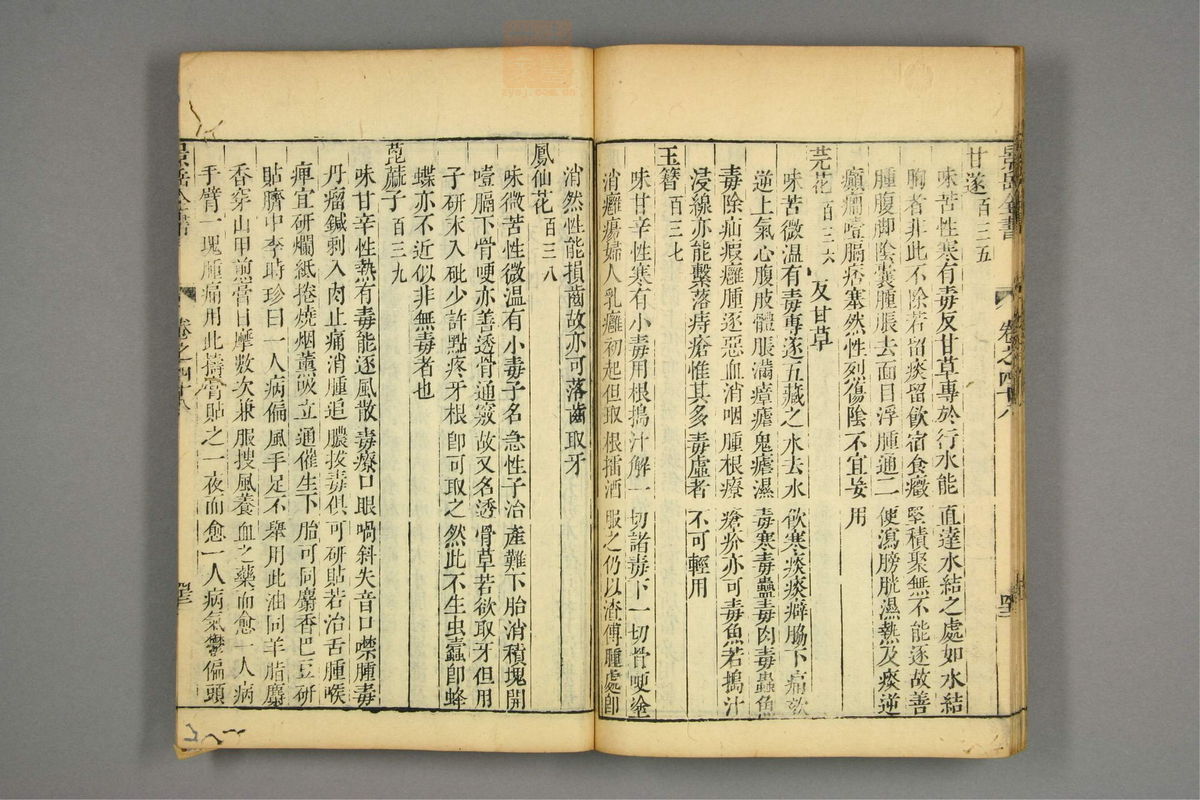 景岳全書 卷之四十八
甘遂百三五
味苦性寒有毒反甘草專於行水能直達水結之處如水結
胸者非此不除若留痰留飲宿食癥堅積聚無不能逐故善
腫腹脚陰囊腫脹去面目浮腫通二便瀉膀胱濕熱及痰逆
癲癇噎膈痞塞然性烈傷陰不宜妄用
芫花百三六 反甘草
味苦微溫有毒專逐五藏之水去水飲寒痰痰癖脇下痛欬
逆上氣心腹肢體脹滿瘴瘧鬼瘧濕毒寒毒蠱毒肉毒蟲魚
毒除疝瘕癰腫逐惡血消咽腫根療瘡疥亦可毒魚若搗汁
浸線亦能繫落痔瘡惟其多毒虛者不可輕用
玉簪百三七
味甘辛性寒有小毒用根搗汁解一切諸毒下一切骨哽塗
消癰瘍婦人乳癰初起但取根擂酒服之仍以渣傅腫處卽
消然性能損齒故亦可落齒取牙
鳳仙花百三八
味微苦性微溫有小毒子名急性子治產難下胎消積塊開
噎膈下骨哽亦善透骨通竅故又名透骨草若欲取牙但用
子研末入砒少許點疼牙根卽可取之然此不生虫蠹卽蜂
蝶亦不近似非無毒者也
萞蔴子百三九
味甘辛性熱有毒能逐風散毒療口眼喎斜失音口噤腫毒
丹瘤鍼刺入肉止痛消腫追膿拔毒俱可研貼若治舌腫喉
痺宜研爛紙捲燒烟薰吸立通催生下胎可同麝香巴豆研
貼臍中李時珍曰一人病偏風手足不舉用此油同羊脂麝
香穿山甲煎膏日摩數次兼服搜風養血之藥而愈一人病
手臂一塊腫痛用此搗膏貼之一夜而愈一人病氣鬱偏頭
景岳全書 卷之四十八